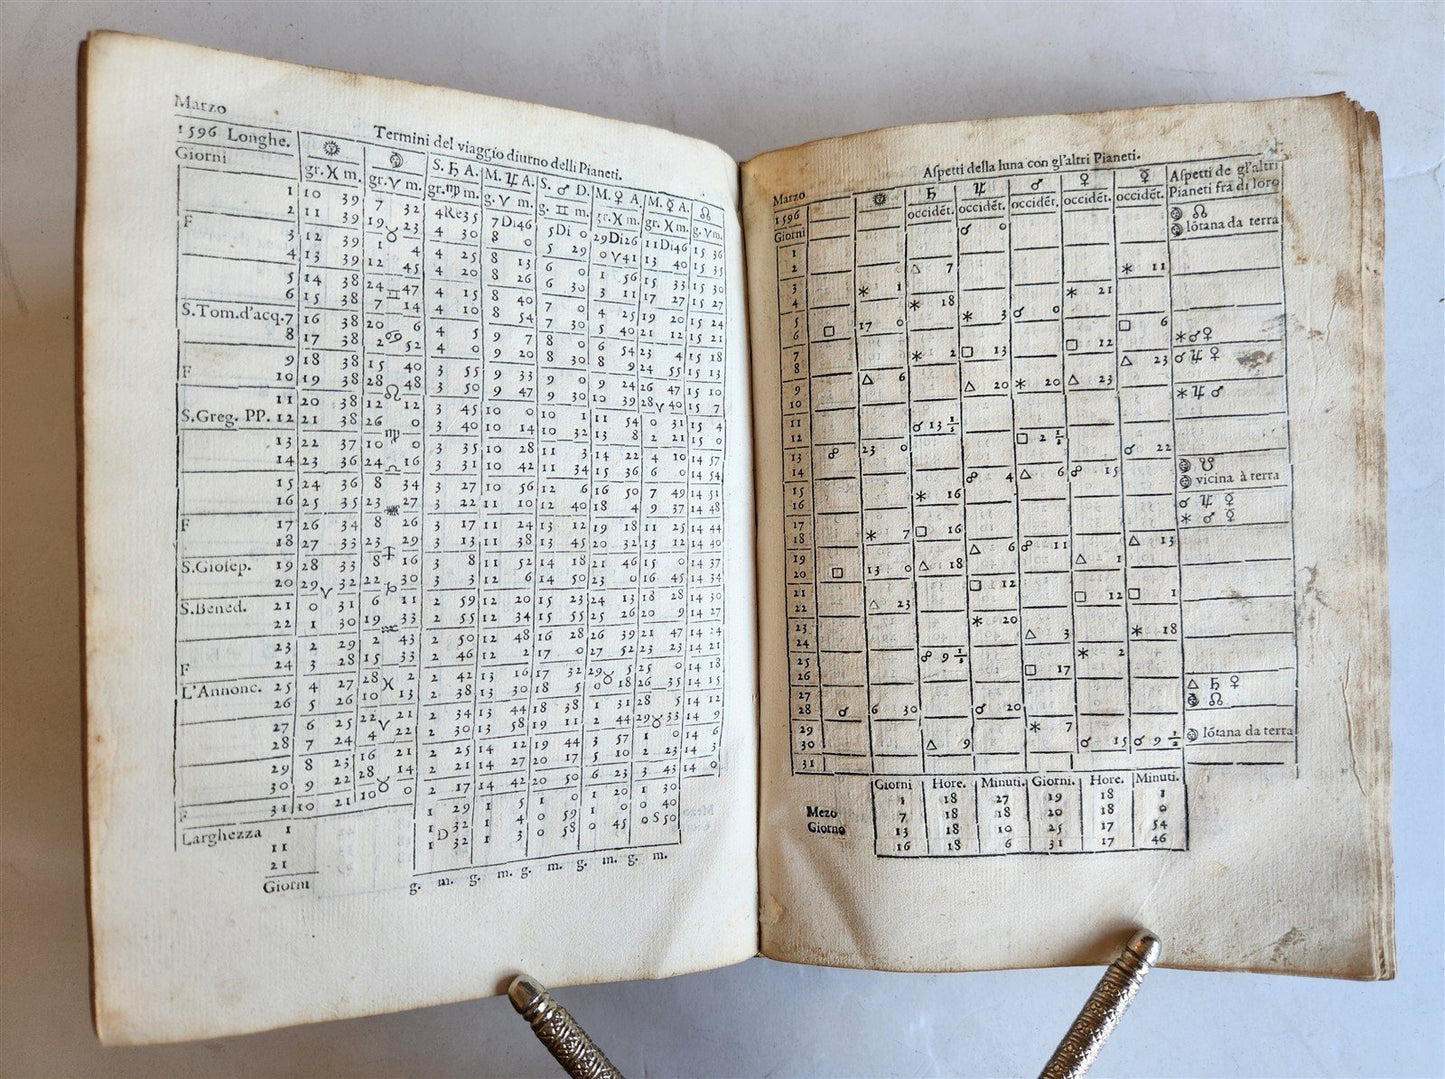 Marzo
Termini del viaggio diurno delli Pianeti.
1596 Longhe. ☉ ☽ S. ♄ A. M. ♃ A. S. ♂ D. M. ♀ A. M. ☿ A. ☊
Giorni gr. ♓ m. gr. ♈ m. gr. ♍ m. g. ♈ m. g. ♊ m. gr. ♓ m. gr. ♓ m. g. ♈ m.
1 10 39 7 32 4Re35 7Di46 5Di 0 29Di26 11Di46 15 36
F 2 11 39 19 ♉ 23 4 30 8 0 5 29 0 ♈ 41 13 40 15 35
3 12 39 1 4 4 25 8 13 6 0 1 56 15 33 15 30
4 13 39 12 45 4 20 8 26 6 30 3 11 17 27 15 27
5 14 38 24 ♊ 47 4 15 8 40 7 0 4 25 19 20 15 24
6 15 38 7 14 4 10 8 54 7 30 5 40 21 12 15 21
S.Tom.d'acq. 7 16 38 20 6 4 5 9 7 8 0 6 54 23 4 15 18
8 17 38 2 ♋ 52 4 0 9 20 8 30 8 9 24 55 15 13
9 18 38 15 40 3 55 9 33 9 0 9 24 26 47 15 10
F 10 19 38 28 ♌ 48 3 50 9 47 9 30 10 39 28 ♈ 40 15 7
11 20 38 12 12 3 45 10 0 10 1 11 54 0 31 15 4
S.Greg. PP. 12 21 38 26 ♍ 0 3 40 10 14 10 32 13 8 2 21 15 0
13 22 37 10 0 3 35 10 28 11 3 14 22 4 10 14 57
14 23 36 24 ♎ 16 3 31 10 42 11 34 15 36 6 0 14 54
15 24 36 8 34 3 27 10 56 12 6 16 50 7 49 14 51
16 25 35 23 ♏ 27 3 22 11 10 12 40 18 4 9 37 14 48
F 17 26 34 8 26 3 17 11 24 13 12 19 18 11 25 14 44
18 27 33 23 ♐ 29 3 13 11 38 13 45 20 32 13 12 14 40
S.Giosep. 19 28 33 8 16 3 8 11 52 14 18 21 46 15 0 14 37
20 29 ♈ 32 22 ♑ 30 3 3 12 6 14 50 23 0 16 45 14 34
S.Bened. 21 0 31 6 11 2 59 12 20 15 23 24 13 18 28 14 30
22 1 30 19 ♒ 33 2 55 12 34 15 55 25 26 20 9 14 27
23 2 29 2 43 2 50 12 48 16 28 26 39 21 47 14 24
F 24 3 28 15 33 2 46 12 2 17 0 27 52 23 23 14 21
L'Annonc. 25 4 27 28 ♓ 2 2 42 13 16 17 32 29 ♉ 5 25 0 14 18
26 5 26 10 13 2 38 13 30 18 5 0 18 26 35 14 15
27 6 25 22 ♈ 21 2 34 13 44 18 38 1 31 28 5 14 12
28 7 24 4 22 2 30 13 58 19 11 2 44 29 ♉ 33 14 9
29 8 23 16 21 2 25 14 12 19 44 3 57 1 0 14 6
30 9 22 28 ♉ 14 2 21 14 27 20 17 5 10 2 23 14 3
F 31 10 21 10 0 2 17 14 42 20 50 6 23 3 43 14 0
Larghezza 1 1 29 1 5 1 0 1 20 1 30
11 1 D 32 1 4 0 59 1 0 0 40
21 1 32 1 3 0 58 0 45 0 S 50
Giorni g. m. g. m. g. m. g. m. g. m.
Aspetti della luna con gl'altri Pianeti.
Marzo ☉ ♄ ♃ ♂ ♀ ☿ Aspetti de gl'altri
1596 occidēt. occidēt. occidēt. occidēt. occidēt. Pianeti fra di loro
Giorni ♂ 0 ☽ ☊
☽ lōtana da terra
1
2 △ 7 ✶ 11
3 ✶ 1
4 ✶ 18 ✶ 21
5 ✶ 3 ☌ 0
6 □ 17 0 □ 6
7 □ 12 ✶ ♂ ♀
8 ✶ 2 □ 13 △ 23 ☌ ♃ ♀
9 △ 6
10 △ 20 ✶ 20 △ 23 ✶ ♃ ♂
11
12 ☌ 13 1/2 □ 2 1/2
13 ☍ 23 0 ☌ 22
14 ☍ 4 △ 6 ☍ 15 ☽ ☋
☽ vicina à terra
15
16 ✶ 16 ☌ ♃ ☿
✶ ♂ ☿
17
18 ✶ 7 □ 16 △ 13
19 △ 6 ☍ 11
20 □ 13 0 △ 18 △ 1
21 □ 12
22 △ 23 □ 12 □ 1
23 ✶ 20
24 △ 3 ✶ 18
25 ☍ 9 1/2 ✶ 2
26 □ 17
27 △ ♄ ♀
28 ☌ 6 30 ☌ 20 ☽ ☊
29 ✶ 7
30 △ 9 ☌ 15 ☌ 9 1/2 ☽ lōtana da terra
31
Giorni Hore. Minuti. Giorni. Hore. Minuti.
1 18 27 19 18 1
Mezo 7 18 18 20 18 0
Giorno 13 18 10 25 17 54
16 18 6 31 17 46